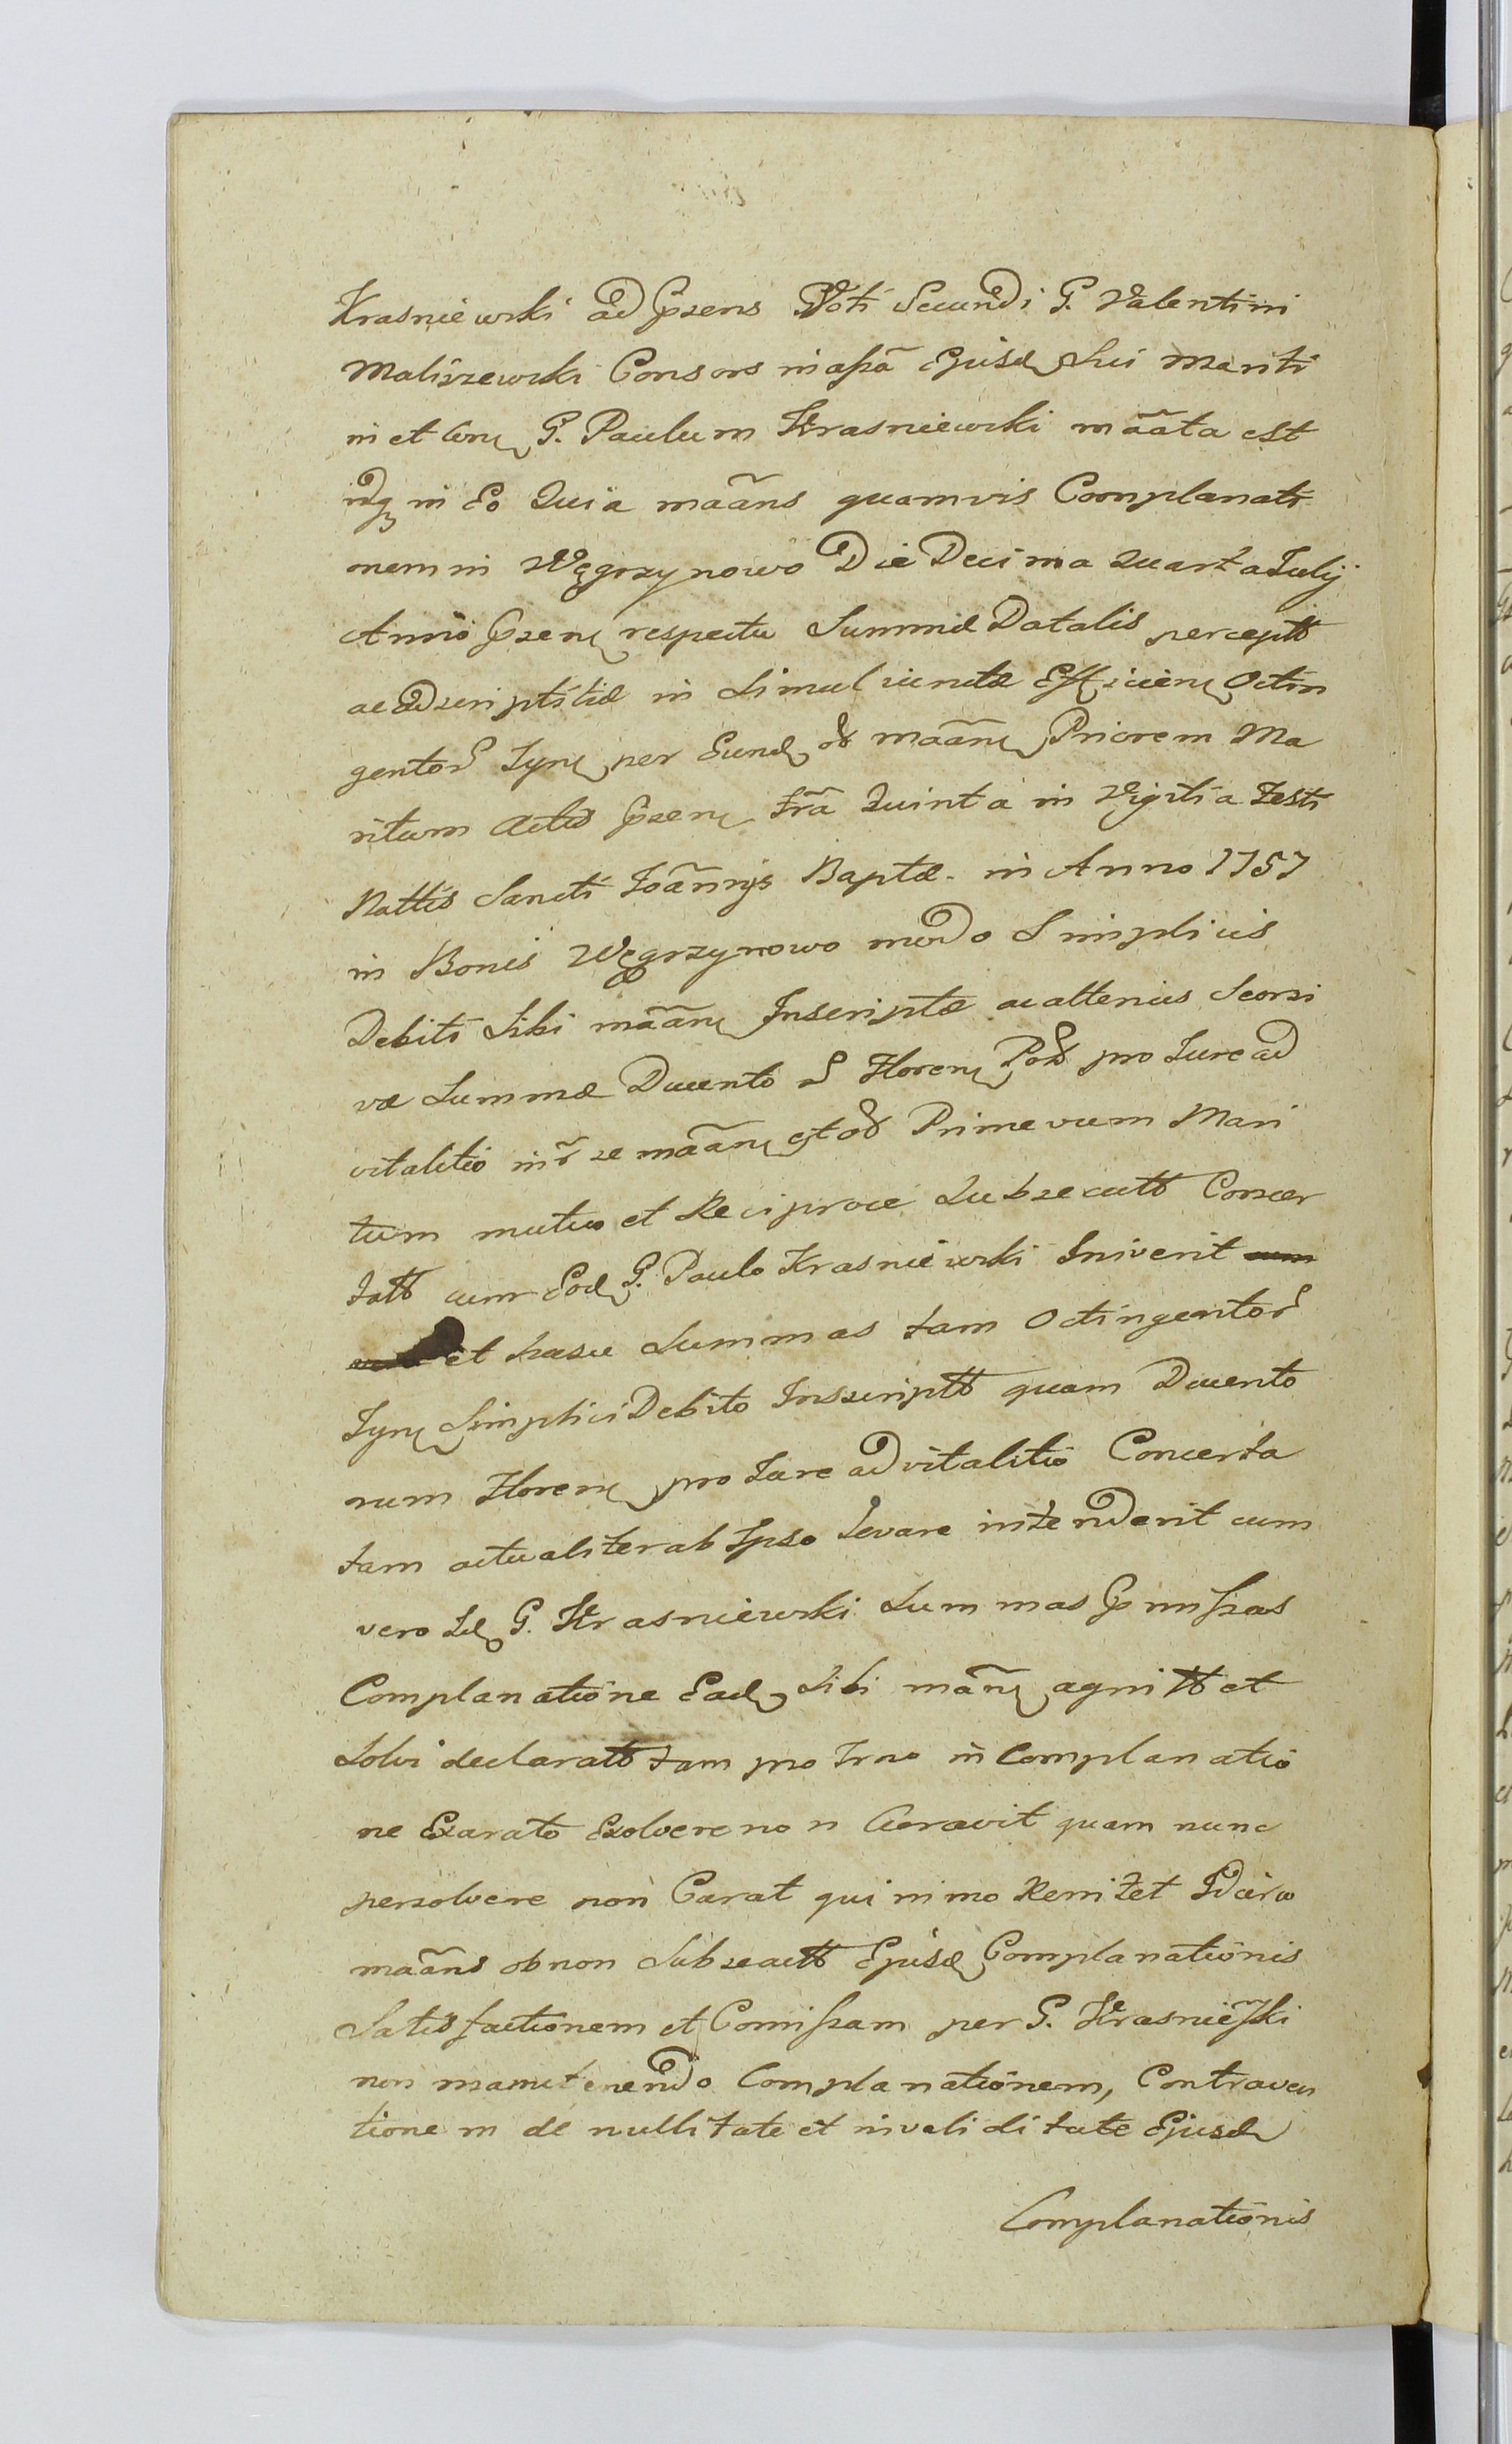 Krasniewski ad pṡens Voti Secundi G. Valentini
Maliszewski Consors in assã Ejusd Sui Mariti
in et con G. Paulum Krasniewski mããta est
idq in Eo Quia mããns quamvis Complanati
onem in Węgrzynowo Die Decima Quarta Julij
Anno pṡen respectu Summæ Dotalis percepttæ
ac adscriptitiæ in Simul iunctæ Efficien Octin
gentor Tyn per Eund ol mããn Priorem Ma
ritum Actis pṡen Frã Quinta in Vigilia Festi
Nattis Sancti Joãnnis Baptæ. in Anno 1757
in Bonis Węgrzynowo modo Simplicis
Debiti Sibi mããn Inscriptæ ac alterius Seorsi
væ Summæ Ducentor Floren Pol pro Jure ad
vitalitio inr se mããn et ol Primevum Mari
tum mutuo et Reciproce Subsecutt Concer
tatt cum Eod G. Paulo Krasniewski Iniverit
et hasce Summas tam Octingentor
Tyn Simplici Debito Inscriptt quam Ducento
rum Floren pro Jure advitalitio Concerta
tam actualiter ab Ipso levare intenderit cum
vero Id G. Krasniewski Summas pmissas
Complanatione Ead Sibi mãn agnitt et
Solvi declaratt tam pro Trno in Complanatio
ne Exarato Exolvere non Curavit quam nunc
persolvere non Curat qui nimo Renitet Idcirco
mããns ob non Subsecutt Ejusd Complanationis
Satisfactionem et Comissam per G. Krasnieski
non manutenendo Complanationem, Contraven
tionem de nullitate et invaliditate Ejusd
Complanationis